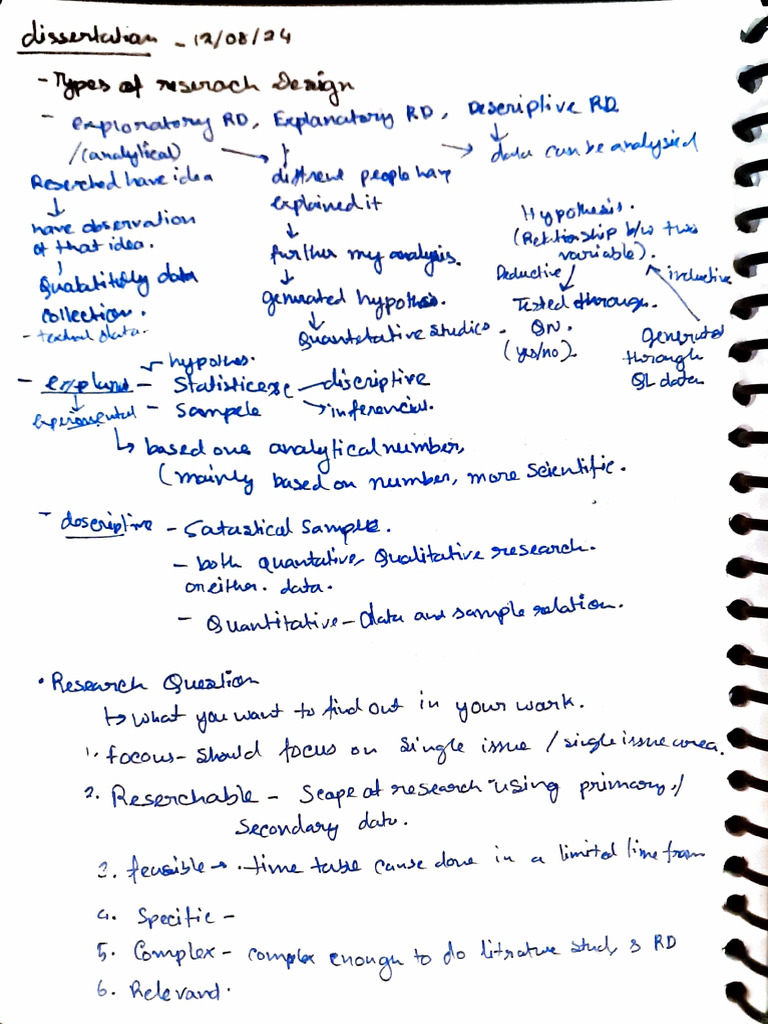 dissertation - 12/08/24
- Types of reserach Design
- exploratory RD, Explanatory RD, Descriptive RD
/(analytical)
data can be analysied
Reserched have idea
have observation
of that idea.
Qualitatively data
collection.
- textual data.
diffrent people have
explained it
further my analysis.
generated hypothesis.
Quantetative studies.
Hypothesis.
(Relationship b/w two
variable).
Deductive
inductive
Tested through.
QN.
(yes/no).
generated
through
QL data
hypothes.
- explana - Statisticese - discriptive
experimental - Sampele inferencial.
based one analytical number,
(mainly based on number, more scientific.
- descriptive - Satastical Sample.
- both quantative, Qualitative research.
or either. data.
- Quantitative - data and sample relation.
• Research Question
What you want to find out in your work.
1. focous - should focus on single issue / single issue area.
2. Reserchable - Scope of research using primary /
Secondary data.
3. feasible - time done in a limited time fram
4. Specific -
5. Complex - complex enough to do litrature stud & RD
6. Relevand.